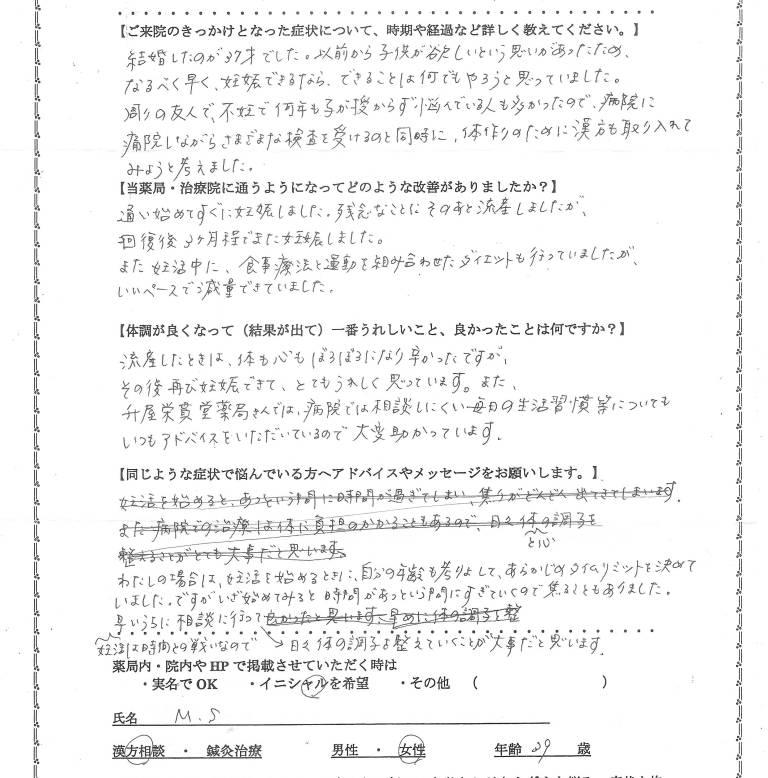 【ご来院のきっかけとなった症状について、時期や経過など詳しく教えてください。】
結婚したのが37才でした。以前から子供が欲しいという思いがあったため、
なるべく早く、妊娠できるなら、できることは何でもやろうと思っていました。
周りの友人で、不妊で何年も子が授からず悩んでいる人も多かったので、病院に
通院しながらさまざまな検査を受けるのと同時に、体作りのために漢方も取り入れて
みようと考えました。
【当薬局・治療院に通うようになってどのような改善がありましたか？】
通い始めてすぐに妊娠しました。残念なことにそのあと流産しましたが、
回復後3ヶ月程でまた妊娠しました。
また妊活中に、食事療法と運動を組み合わせたダイエットも行っていましたが、
いいペースで減量できていました。
【体調が良くなって（結果が出て）一番うれしいこと、良かったことは何ですか？】
流産したときは、体も心もぼろぼろになり辛かったですが、
その後再び妊娠できて、とてもうれしく思っています。また、
升屋栄貫堂薬局さんでは、病院では相談しにくい毎日の生活習慣等についても
いつもアドバイスをいただいているので大変助かっています。
【同じような症状で悩んでいる方へアドバイスやメッセージをお願いします。】
妊活を始めると、あっという間に時間が過ぎてしまい、焦りがどんどん出てきてしまいます。
また病院での治療は体に負担のかかることもあるので、日々体の調子を
と心
整えることがとても大事だと思います。
わたしの場合は、妊活を始めるときに、自分の年齢も考慮して、あらかじめタイムリミットを決めて
いました。ですがいざ始めてみると時間があっという間にすぎていくので焦ることもありました。
早いうちに相談に行って良かったと思います、早めに体の調子を整
妊活は時間との戦いなので 日々体の調子を整えていくことが大事だと思います。
薬局内・院内やHPで掲載させていただく時は
・実名でOK ・イニシャルを希望 ・その他 （ ）
氏名 M.S
漢方相談 ・ 鍼灸治療 男性 ・ 女性 年齢 39 歳